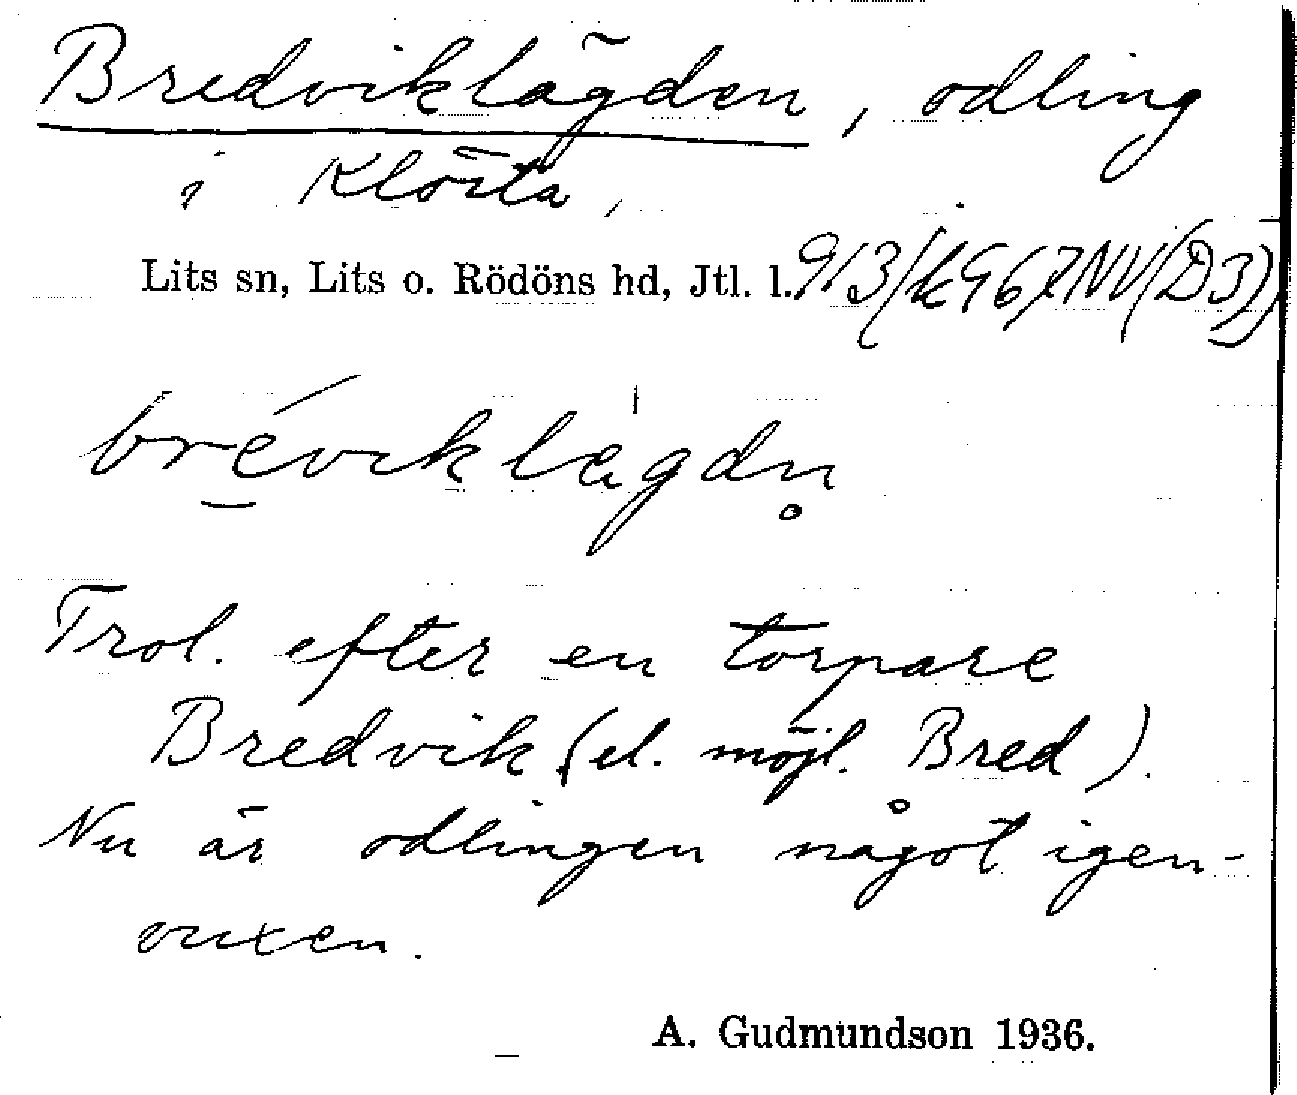 Bredviklägden, odling
i Klösta,
Lits sn, Lits o. Rödöns hd, Jtl. l.
bréviklägdn̥
Trol. efter en torpare
Bredvik (el. möjl. Bred).
Nu är odlingen något igen-
vuxen.
A. Gudmundson 1936.